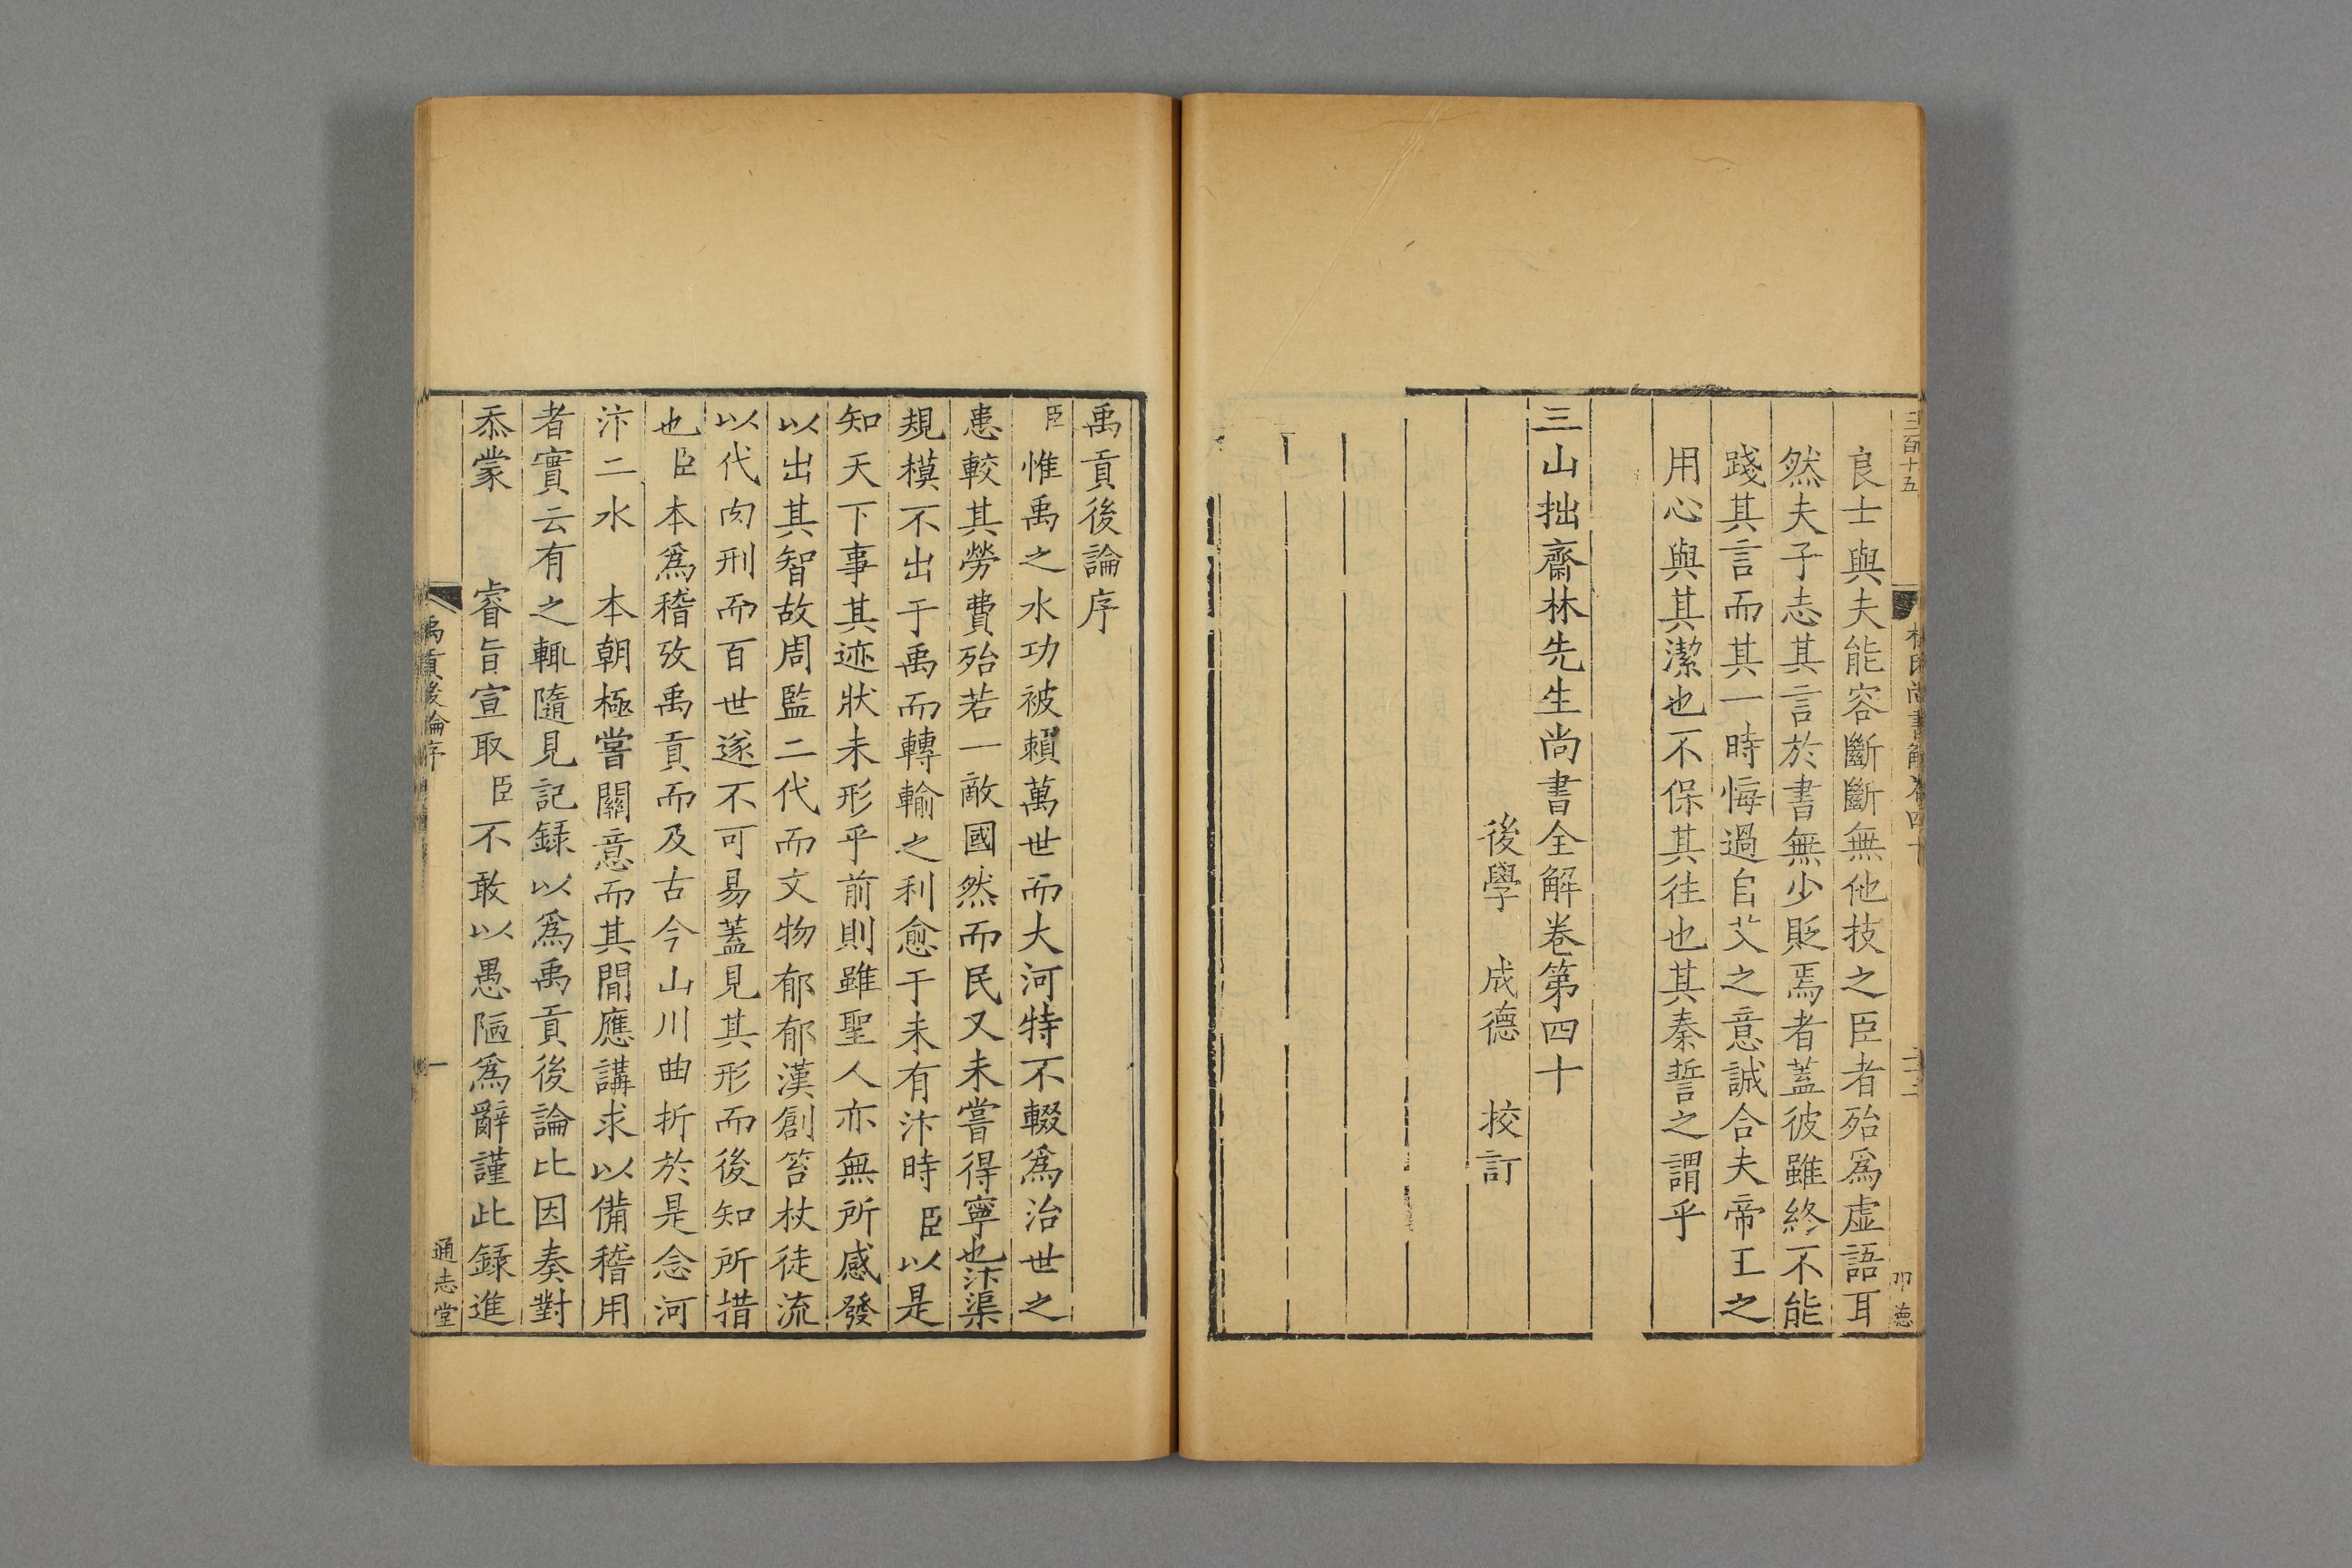 三百十五
良士與夫能容斷斷無他技之臣者殆爲虛語耳
然夫子志其言於書無少貶焉者蓋彼雖終不能
踐其言而其一時悔過自艾之意誠合夫帝王之
用心與其潔也不保其往也其秦誓之謂乎
三山拙齋林先生尚書全解卷第四十
後學 成德 挍訂
禹貢後論序
臣惟禹之水功被賴萬世而大河特不輟爲治世之
患較其勞費殆若一敵國然而民又未嘗得寧也汴渠
規模不出于禹而轉輸之利愈于未有汴時臣以是
知天下事其迹狀未形乎前則雖聖人亦無所感發
以出其智故周監二代而文物郁郁漢創笞杖徒流
以代肉刑而百世遂不可易蓋見其形而後知所措
也臣本爲稽攷禹貢而及古今山川曲折於是念河
汴二水 本朝極嘗關意而其間應講求以備稽用
者實云有之輒隨見記録以爲禹貢後論比因奏對
忝蒙 睿旨宣取臣不敢以愚陋爲辭謹此錄進
禹貢後論序
一
通志堂